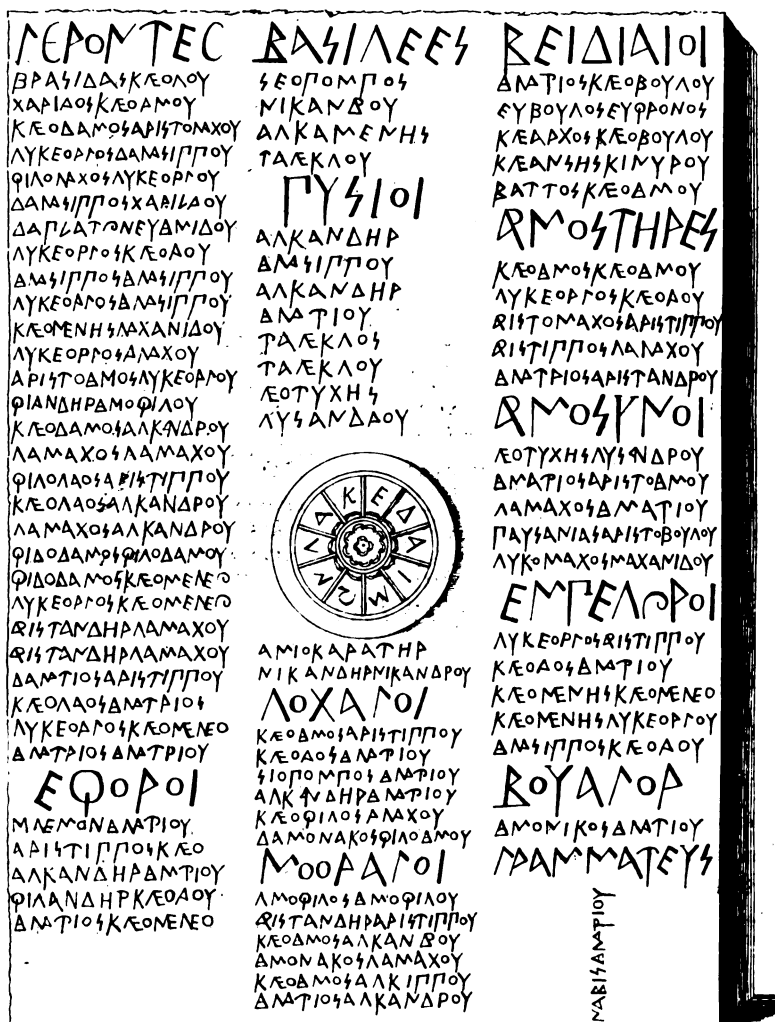 ΓΕΡΟΝΤΕΣ
ΒΡΑΣΙΔΑΣΚΛΕΟΛΟΥ
ΧΑΡΙΔΟΣΚΛΕΟΔΜΟΥ
ΚΛΕΟΔΑΜΟΣΑΡΙΣΤΟΜΑΧΟΥ
ΛΥΚΕΟΡΓΟΣΔΑΜΑΣΙΠΠΟΥ
ΦΙΛΟΜΑΧΟΣΛΥΚΕΟΡΓΟΥ
ΔΑΜΑΣΙΠΠΟΣΧΑΡΙΛΑΟΥ
ΛΥΚΕΟΡΓΟΣΚΛΕΟΔΟΥ
ΔΑΜΑΣΙΠΠΟΣΔΑΜΑΣΙΠΠΟΥ
ΛΥΚΕΟΡΓΟΣΔΑΜΑΣΙΠΠΟΥ
ΚΛΕΟΜΕΝΗΣΛΑΧΑΝΙΔΟΥ
ΛΥΚΕΟΡΓΟΣΛΑΜΑΧΟΥ
ΑΡΙΣΤΟΔΑΜΟΣΛΥΚΕΟΡΓΟΥ
ΦΙΛΑΝΔΗΡΔΑΜΟΦΙΛΟΥ
ΚΛΕΟΔΑΜΟΣΑΛΚΑΝΔΡΟΥ
ΛΑΜΑΧΟΣΛΑΜΑΧΟΥ
ΦΙΛΟΛΑΟΣΑΡΙΣΤΙΠΠΟΥ
ΚΛΕΟΛΑΟΣΑΛΚΑΝΔΡΟΥ
ΛΑΜΑΧΟΣΑΛΚΑΝΔΡΟΥ
ΦΙΛΟΔΑΜΟΣΦΙΛΟΔΑΜΟΥ
ΦΙΛΟΔΑΜΟΣΚΛΕΟΜΕΝΕΟ
ΛΥΚΕΟΡΓΟΣΚΛΕΟΜΕΝΕΟ
ΑΡΙΣΤΑΝΔΗΡΛΑΜΑΧΟΥ
ΑΡΙΣΤΑΝΔΗΡΛΑΜΑΧΟΥ
ΔΑΜΑΤΙΟΣΑΡΙΣΤΙΠΠΟΥ
ΚΛΕΟΛΑΟΣΔΑΜΑΤΡΙΟΣ
ΛΥΚΕΟΡΓΟΣΚΛΕΟΜΕΝΕΟ
ΔΑΜΑΤΡΙΟΣΔΑΜΑΤΡΙΟΥ
ΕΦΟΡΟΙ
ΜΝΕΜΟΝΔΑΜΑΤΡΙΟΥ
ΑΡΙΣΤΙΠΠΟΣΚΛΕΟ
ΑΛΚΑΝΔΗΡΔΑΜΑΤΡΙΟΥ
ΦΙΛΑΝΔΗΡΚΛΕΟΔΟΥ
ΔΑΜΑΤΡΙΟΣΚΛΕΟΜΕΝΕΟ
ΒΑΣΙΛΕΕΣ
ΣΕΟΠΟΜΠΟΣ
ΝΙΚΑΝΔΡΟΥ
ΑΛΚΑΜΕΝΗΣ
ΤΑΛΕΚΛΟΥ
ΠΥΣΙΟΙ
ΑΛΚΑΝΔΗΡ
ΔΑΜΑΣΙΠΠΟΥ
ΑΛΚΑΝΔΗΡ
ΔΑΜΑΤΡΙΟΥ
ΤΑΛΕΚΛΟΣ
ΤΑΛΕΚΛΟΥ
ΛΕΟΤΥΧΗΣ
ΛΥΣΑΝΔΔΟΥ
ΛΑΚΕΔΑΙΜΩΝ
ΑΜΙΟΚΑΡΑΤΗΡ
ΝΙΚΑΝΔΗΡΝΙΚΑΝΔΡΟΥ
ΛΟΧΑΓΟΙ
ΚΛΕΟΔΑΜΟΣΑΡΙΣΤΙΠΠΟΥ
ΚΛΕΟΔΟΣΔΑΜΑΤΡΙΟΥ
ΣΙΟΠΟΜΠΟΣΔΑΜΑΤΡΙΟΥ
ΑΛΚΑΝΔΗΡΔΑΜΑΤΡΙΟΥ
ΚΛΕΟΦΙΛΟΣΛΑΜΑΧΟΥ
ΔΑΜΟΝΑΚΟΣΦΙΛΟΔΑΜΟΥ
ΜΟΟΡΑΓΟΙ
ΔΑΜΟΦΙΛΟΣΔΑΜΟΦΙΛΟΥ
ΑΡΙΣΤΑΝΔΗΡΑΡΙΣΤΙΠΠΟΥ
ΚΛΕΟΔΑΜΟΣΑΛΚΑΝΔΡΟΥ
ΔΑΜΟΝΑΚΟΣΛΑΜΑΧΟΥ
ΚΛΕΟΔΑΜΟΣΑΛΚΙΠΠΟΥ
ΔΑΜΑΤΙΟΣΑΛΚΑΝΔΡΟΥ
ΒΕΙΔΙΑΙΟΙ
ΔΑΜΑΤΡΙΟΣΚΛΕΟΒΟΥΛΟΥ
ΕΥΒΟΥΛΟΣΕΥΦΡΟΝΟΣ
ΚΛΕΑΡΧΟΣΚΛΕΟΒΟΥΛΟΥ
ΚΛΕΑΝΣΗΣΚΙΝΥΡΟΥ
ΒΑΤΤΟΣΚΛΕΟΔΑΜΟΥ
ΑΡΜΟΣΤΗΡΕΣ
ΚΛΕΟΔΑΜΟΣΚΛΕΟΔΑΜΟΥ
ΛΥΚΕΟΡΓΟΣΚΛΕΟΔΟΥ
ΑΡΙΣΤΟΜΑΧΟΣΑΡΙΣΤΙΠΠΟΥ
ΑΡΙΣΤΙΠΠΟΣΛΑΜΑΧΟΥ
ΔΑΜΑΤΡΙΟΣΑΡΙΣΤΑΝΔΡΟΥ
ΑΡΜΟΣΥΝΟΙ
ΛΕΟΤΥΧΗΣΛΥΣΑΝΔΡΟΥ
ΔΑΜΑΤΙΟΣΑΡΙΣΤΟΔΑΜΟΥ
ΛΑΜΑΧΟΣΔΑΜΑΤΙΟΥ
ΠΑΥΣΑΝΙΑΣΑΡΙΣΤΟΒΟΥΛΟΥ
ΛΥΚΟΜΑΧΟΣΜΑΧΑΝΙΔΟΥ
ΕΜΠΕΛΩΡΟΙ
ΛΥΚΕΟΡΓΟΣΑΡΙΣΤΙΠΠΟΥ
ΚΛΕΟΔΟΣΔΑΜΑΤΡΙΟΥ
ΚΛΕΟΜΕΝΗΣΚΛΕΟΜΕΝΕΟ
ΚΛΕΟΜΕΝΗΣΛΥΚΕΟΡΓΟΥ
ΔΑΜΑΣΙΠΠΟΣΚΛΕΟΔΟΥ
ΒΟΥΑΓΟΡ
ΔΑΜΟΝΙΚΟΣΔΑΜΑΤΙΟΥ
ΓΡΑΜΜΑΤΕΥΣ
ΝΑΒΙΣΔΑΜΑΤΡΙΟΥ